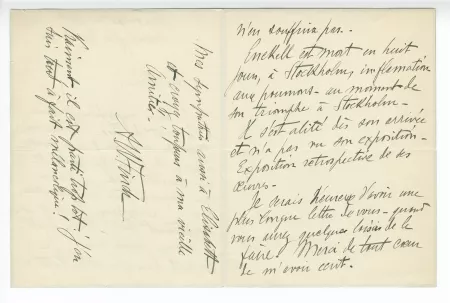 n'en souffrira pas.
Enckell est mort en huit
jours, à Stockholm, inflammation
aux poumons - au moment de
son triomphe à Stockholm -
Il s'est alité dès son arrivée
et n'a pas vu son exposition -
Exposition retrospective de ses
œuvres -
Je serais heureux d'avoir une
plus longue lettre de vous - quand
vous aurez quelques loisirs de le
faire. Merci de tout cœur
de m'avoir écrit.
Vraiment, il est parti trop tôt! J'en
suis tout à fait mélancolique!
Mes sympathies à Elisabeth
et croyez toujours à ma vieille
amitié.
A W Finch